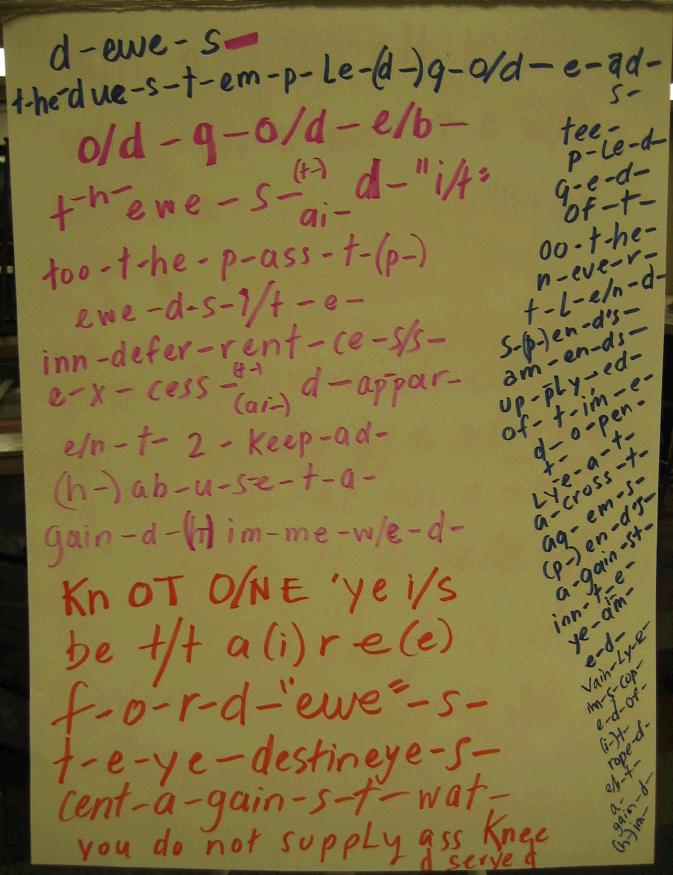 d-ewe-s-
t-he-due-s-t-em-p-Le-(d-)g-o/d-e-ad-
s-
o/d-g-o/d-e/b-
t-h-ewe-s-(t-)ai-d-"i/t"
too-t-he-p-ass-t-(p-)
ewe-d-s-i/t-e-
inn-defer-rent-ce-s/s-
e-x-cess-(t-)(ai-)d-appar-
e/n-t-2-keep-ad-
(h-)ab-u-se-t-a-
gain-d-(h)im-me-w/e-d-
Kn OT O/NE 'ye i/s
be t/t a(i)re(e)
f-o-r-d-"ewe"-s-
t-e-ye-destineye-s-
cent-a-gain-s-t-wat-
you do not supply ass Knee
d serve d
tee-
p-Le-d-
g-e-d-
of-t-
oo-t-he-
n-eve-r-
t-L-e/n-d-
s-(p-)en-d's-
am-en-ds-
up-pLy-ed-
of-t-im-e-
d-o-pen-
t-
Lye-a-t-
a-cross-t-
ag-em-s-
(p-)en-d's-
a-gain-st-
inn-t-e-
ye-am-
e-d-
vain-Ly-e-
im-s-cop-
e-d-or-
(i-)t-
rope-d-
e/s-t-
a-
gain-d-
(h-)im-